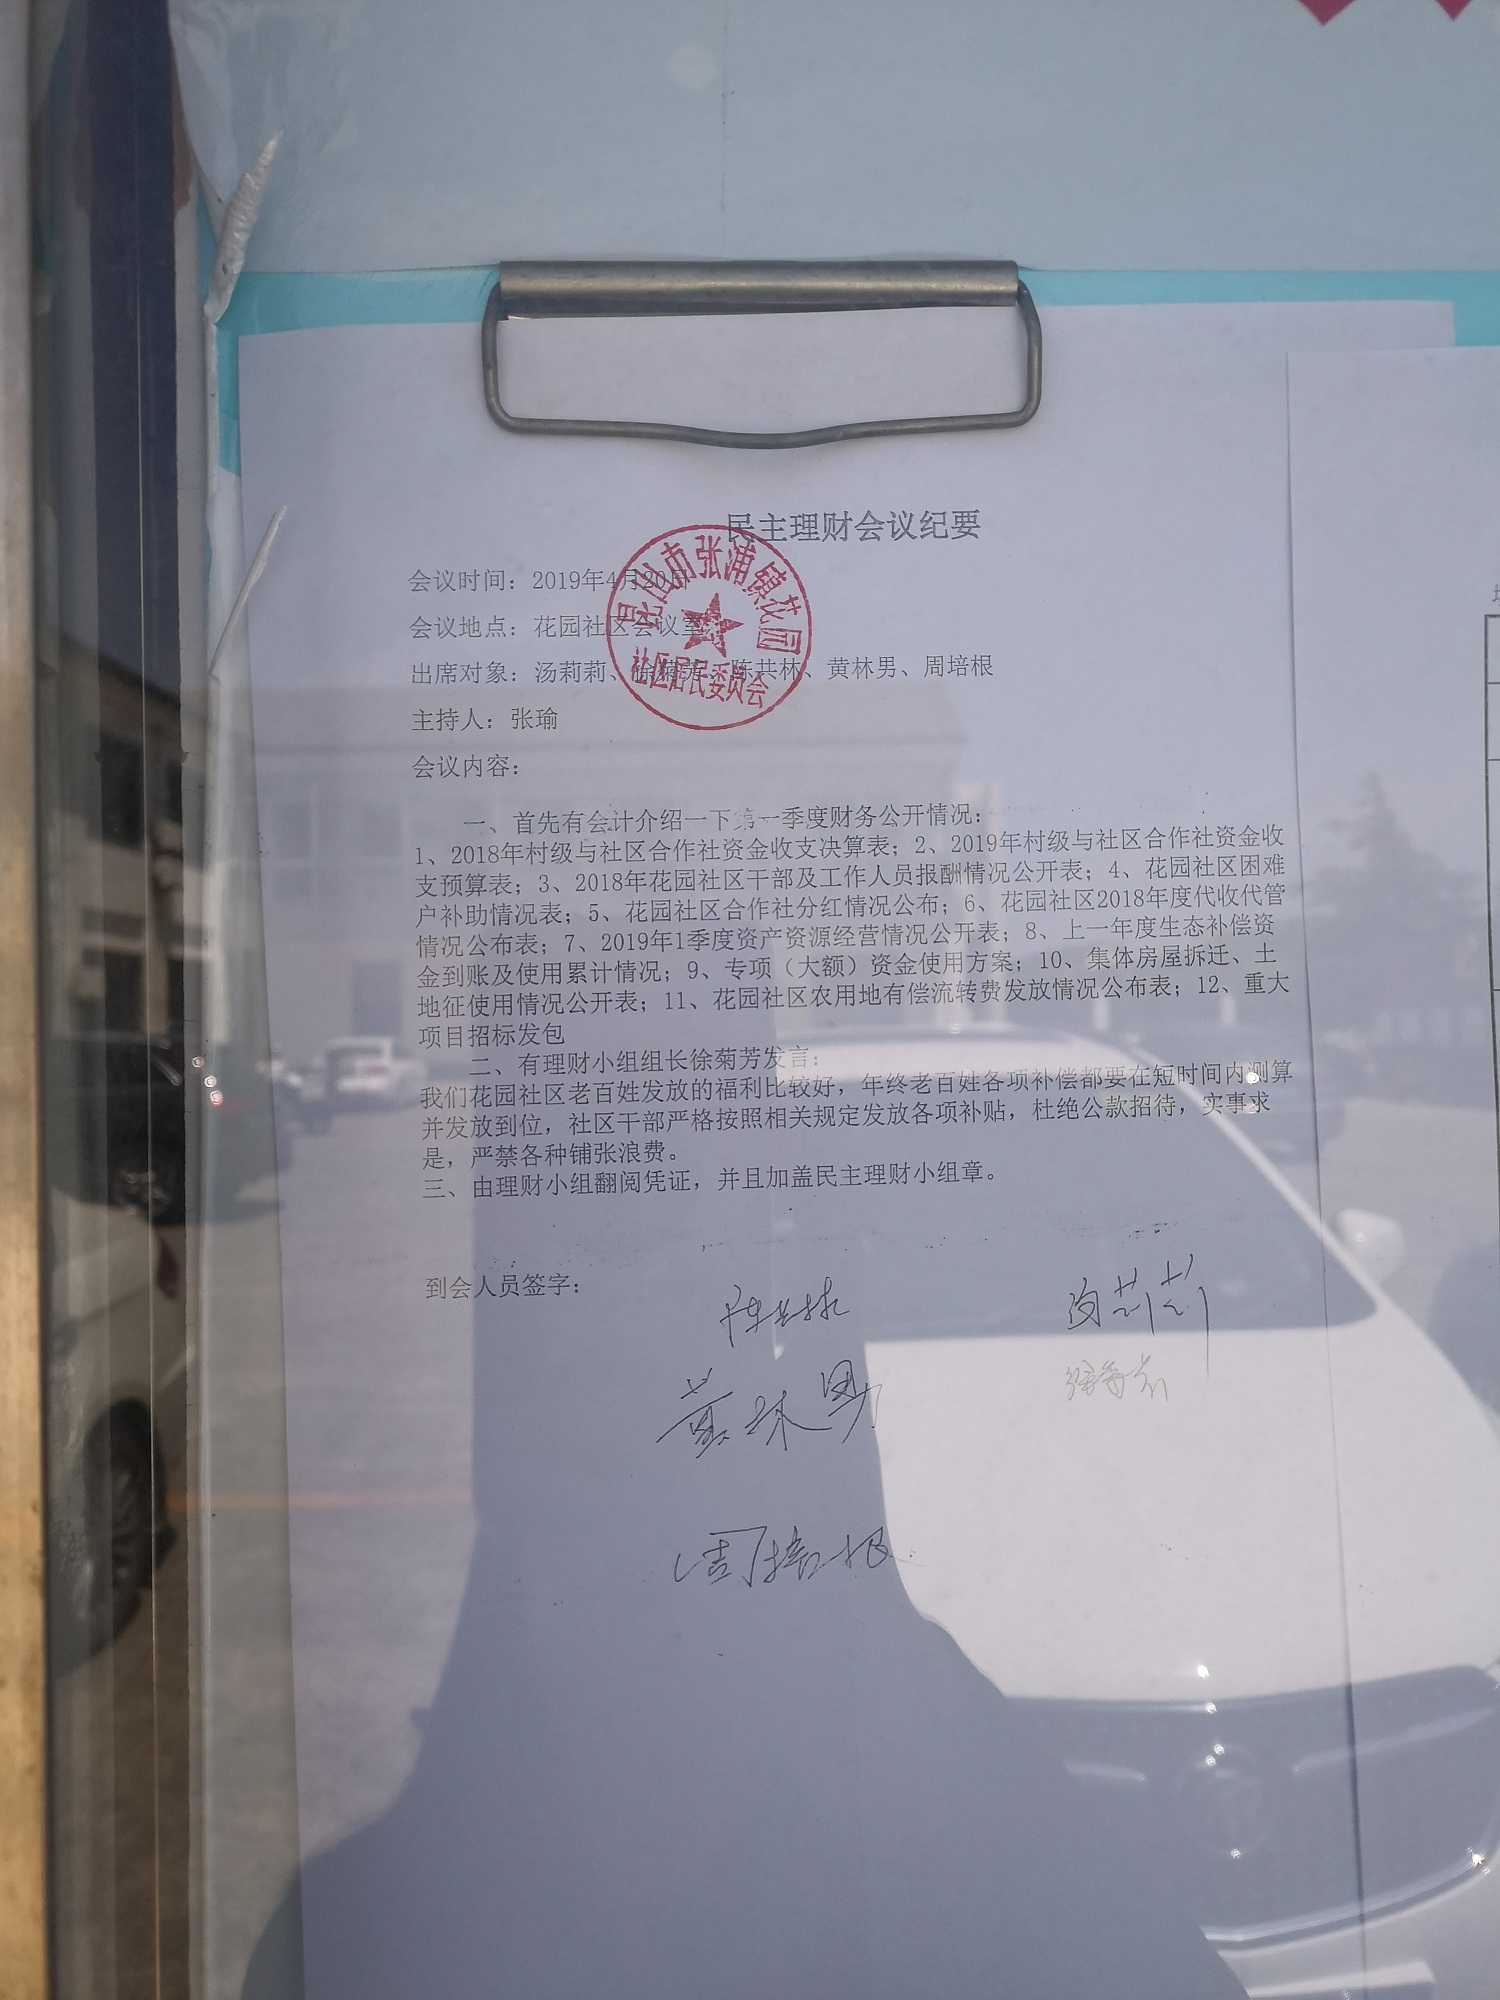 民主理财会议纪要
会议时间：2019年4月20日
会议地点：花园社区会议室
出席对象：汤莉莉、徐菊芳、陈共林、黄林男、周培根
昆山市张浦镇花园
社区居民委员会
主持人：张瑜
会议内容：
一、首先有会计介绍一下第一季度财务公开情况：
1、2018年村级与社区合作社资金收支决算表；2、2019年村级与社区合作社资金收
支预算表；3、2018年花园社区干部及工作人员报酬情况公开表；4、花园社区困难
户补助情况表；5、花园社区合作社分红情况公布；6、花园社区2018年度代收代管
情况公布表；7、2019年1季度资产资源经营情况公开表；8、上一年度生态补偿资
金到账及使用累计情况；9、专项（大额）资金使用方案；10、集体房屋拆迁、土
地征使用情况公开表；11、花园社区农用地有偿流转费发放情况公布表；12、重大
项目招标发包
二、有理财小组组长徐菊芳发言：
我们花园社区老百姓发放的福利比较好，年终老百姓各项补偿都要在短时间内测算
并发放到位，社区干部严格按照相关规定发放各项补贴，杜绝公款招待，实事求
是，严禁各种铺张浪费。
三、由理财小组翻阅凭证，并且加盖民主理财小组章。
到会人员签字：
陈共林 汤莉莉
黄林男 徐菊芳
周培根